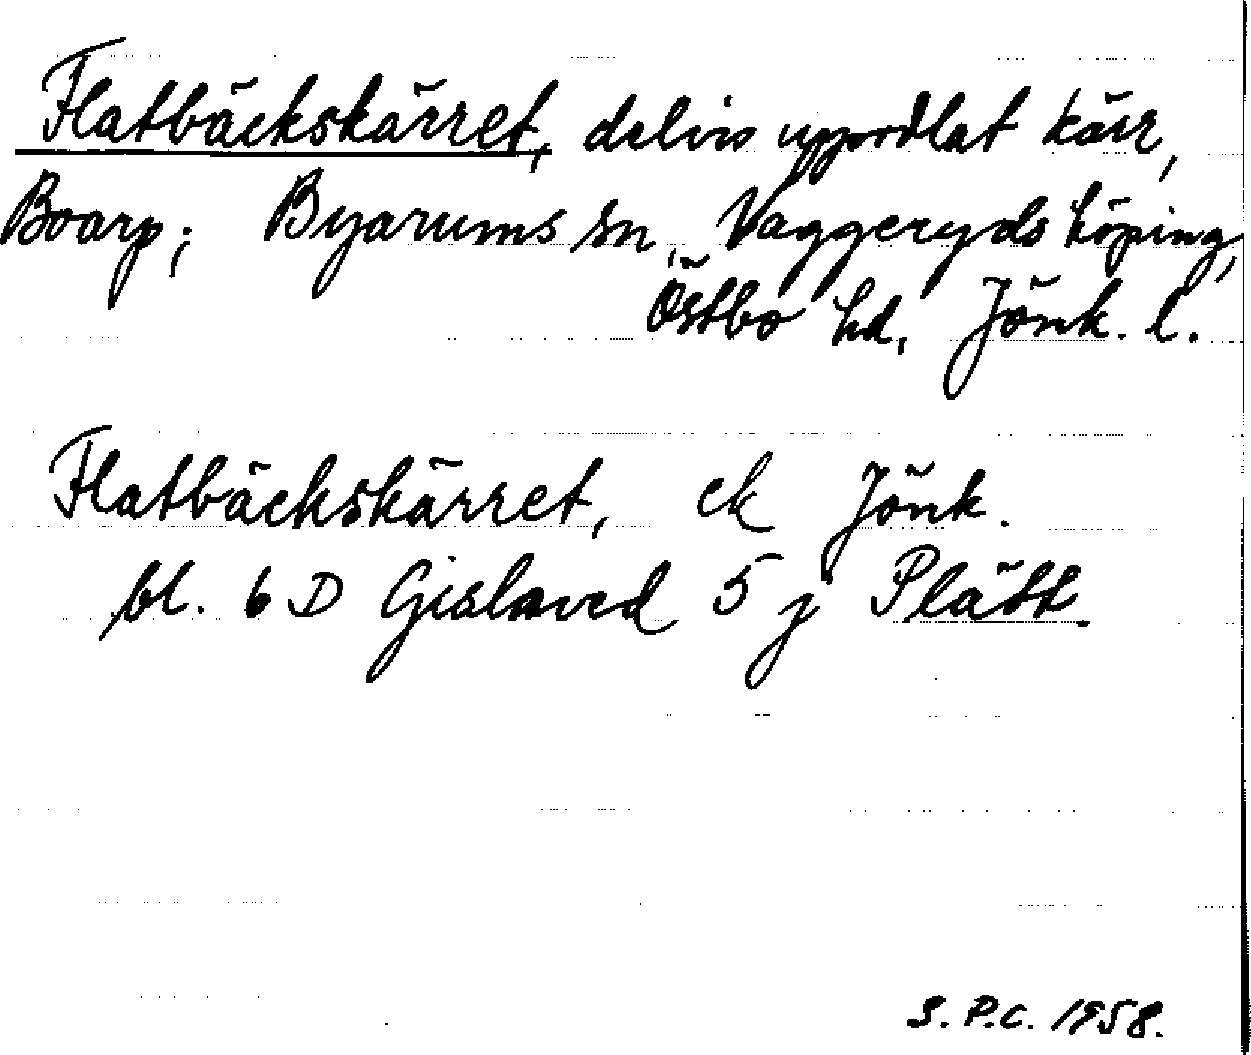 Flatbäckskärret, delvis uppodlat kärr,
Boarp; Byarums sn, Vaggeryds köping,
Östbo hd, Jönk. l.
Flatbäckskärret, ek Jönk.
bl. 6 D Gislaved 5 j Plätt.
S.P.C. 1958.